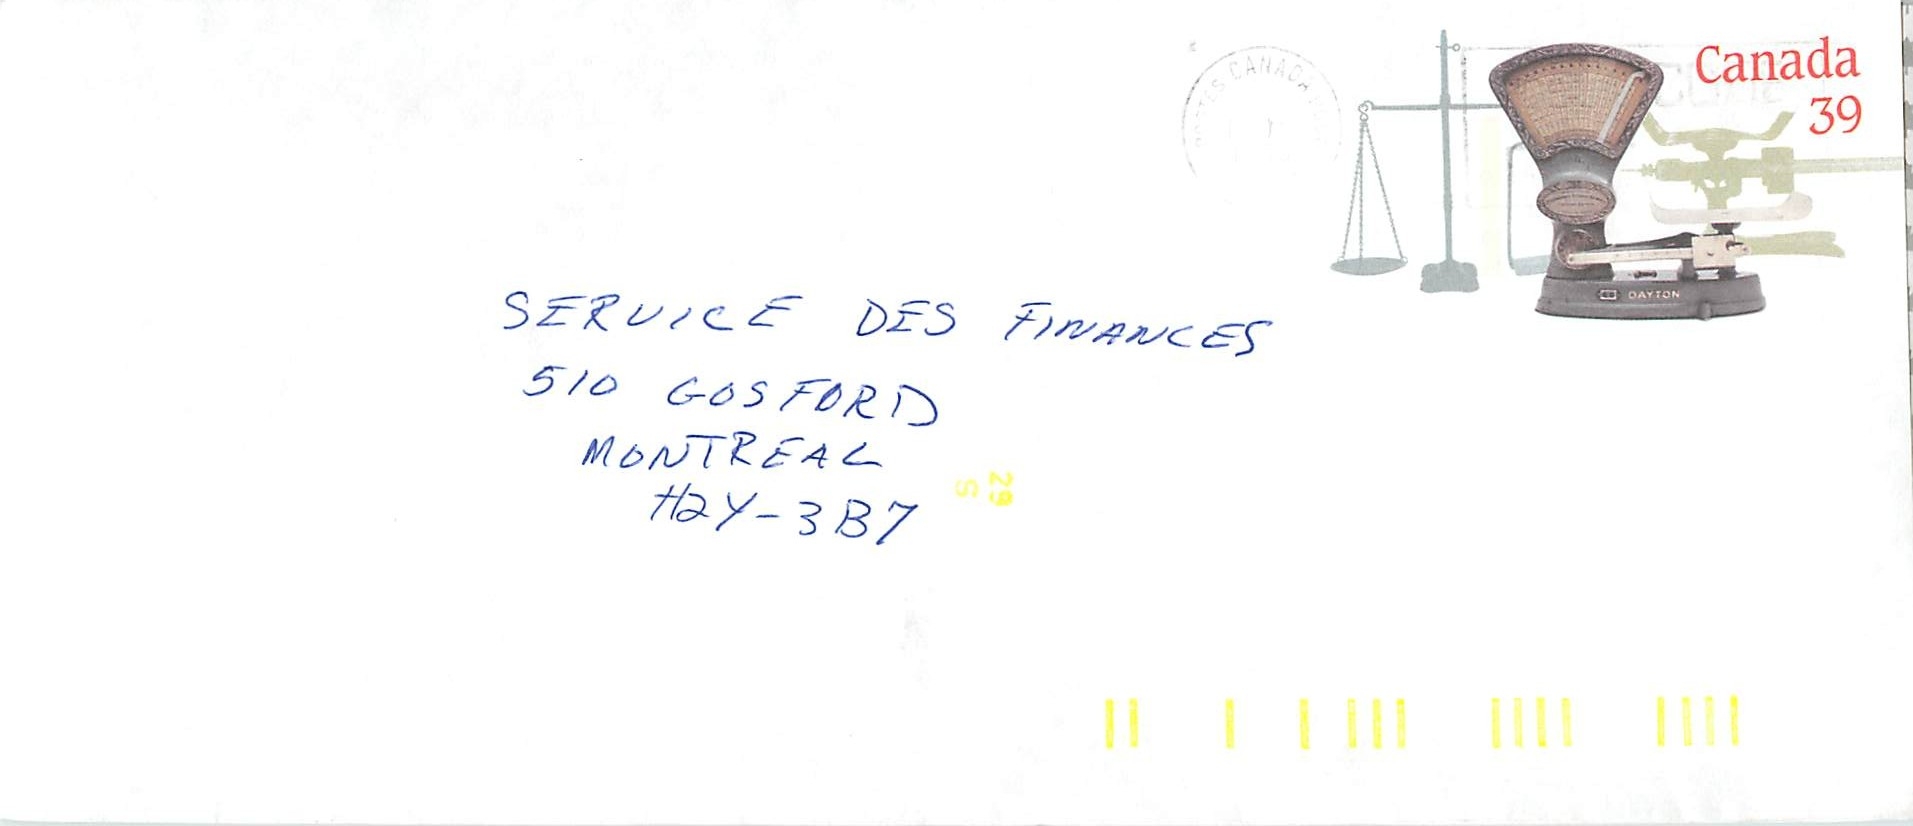 Canada
39
POSTES CANADA
DAYTON
SERVICE DES FINANCES
510 GOSFORD
MONTREAL
H2Y-3B7
29
S